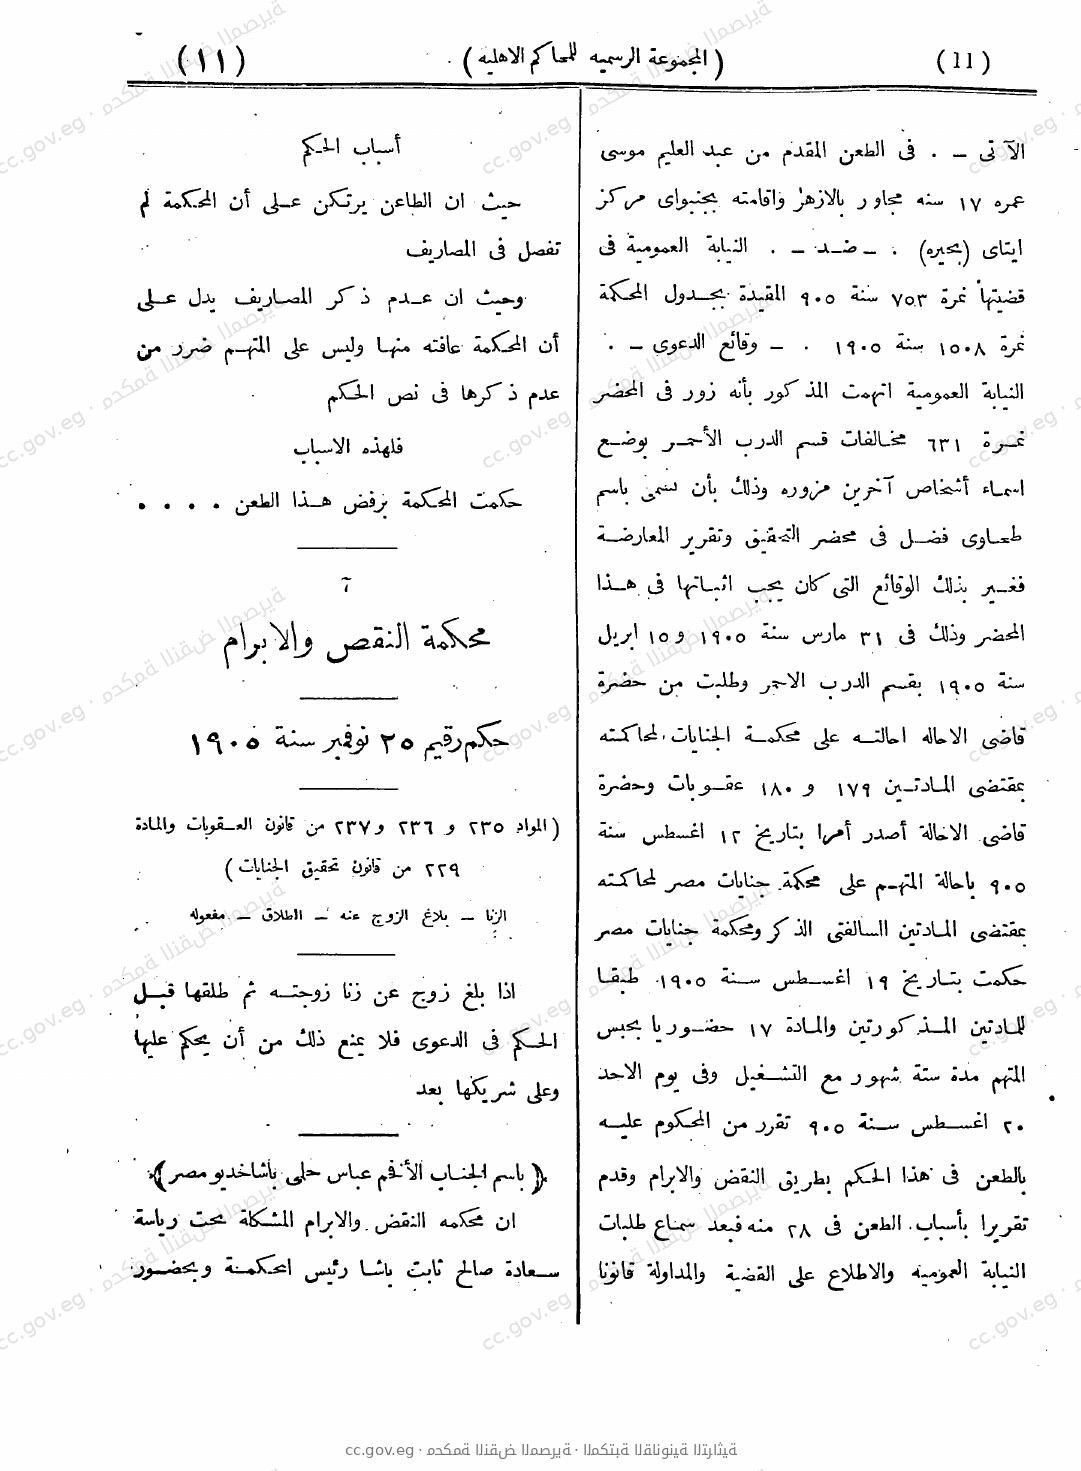 (11) (المجموعة الرسميه للمحاكم الاهليه) (١١)
الآتى – . فى الطعن المقدم من عبد العليم موسى
عمره ١٧ سنه مجاور بالازهر واقامته بجنبواى مركز
ايتاى (بحيره) . – ضد – . النيابة العمومية فى
قضيتها نمرة ٧٥٣ سنة ٩٠٥ المقيدة بجدول المحكمة
نمرة ١٥٠٨ سنة ١٩٠٥ . – وقائع الدعوى – .
النيابة العمومية اتهمت المذكور بأنه زور فى المحضر
نمرة ٦٣١ مخالفات قسم الدرب الأحمر بوضع
اسماء أشخاص آخرين مزوره وذلك بأن تسمى باسم
طحاوى فضل فى محضر التحقيق وتقرير المعارضة
فغير بذلك الوقائع التى كان يجب اثباتها فى هذا
المحضر وذلك فى ٣١ مارس سنة ١٩٠٥ و ١٥ ابريل
سنة ١٩٠٥ بقسم الدرب الاحمر وطلبت من حضرة
قاضى الاحاله احالته على محكمة الجنايات لمحاكمته
بمقتضى المادتين ١٧٩ و ١٨٠ عقوبات وحضرة
قاضى الاحالة أصدر أمرا بتاريخ ١٢ اغسطس سنة
٩٠٥ باحالة المتهم على محكمة جنايات مصر لمحاكمته
بمقتضى المادتين السالفتى الذكر ومحكمة جنايات مصر
حكمت بتاريخ ١٩ اغسطس سنة ١٩٠٥ طبقا
للمادتين المذكورتين والمادة ١٧ حضوريا بحبس
المتهم مدة ستة شهور مع التشغيل وفى يوم الاحد
٢٠ اغسطس سنة ٩٠٥ تقرر من المحكوم عليه
بالطعن فى هذا الحكم بطريق النقض والابرام وقدم
تقريرا بأسباب الطعن فى ٢٨ منه فبعد سماع طلبات
النيابة العموميه والاطلاع على القضية والمداولة قانونا
أسباب الحكم
حيث ان الطاعن يرتكن على أن المحكمة لم
تفصل فى المصاريف
وحيث ان عدم ذكر المصاريف يدل على
أن المحكمة عافته منها وليس على المتهم ضرر من
عدم ذكرها فى نص الحكم
فلهذه الاسباب
حكمت المحكمة برفض هذا الطعن . . . .
٦
محكمة النقض والابرام
حكم رقيم ٢٥ نوفمبر سنة ١٩٠٥
(المواد ٢٣٥ و ٢٣٦ و ٢٣٧ من قانون العقوبات والمادة
٢٢٩ من قانون تحقيق الجنايات)
الزنا – بلاغ الزوج عنه – الطلاق – مفعوله
اذا بلغ زوج عن زنا زوجته ثم طلقها قبل
الحكم فى الدعوى فلا يمنع ذلك من أن يحكم عليها
وعلى شريكها بعد
(باسم الجناب الأفخم عباس حلمى باشا خديو مصر)
ان محكمه النقض والابرام المشكلة تحت رياسة
سعادة صالح ثابت باشا رئيس المحكمة وبحضور
cc.gov.eg · محكمة النقض المصرية · المكتبة القانونية التراثية